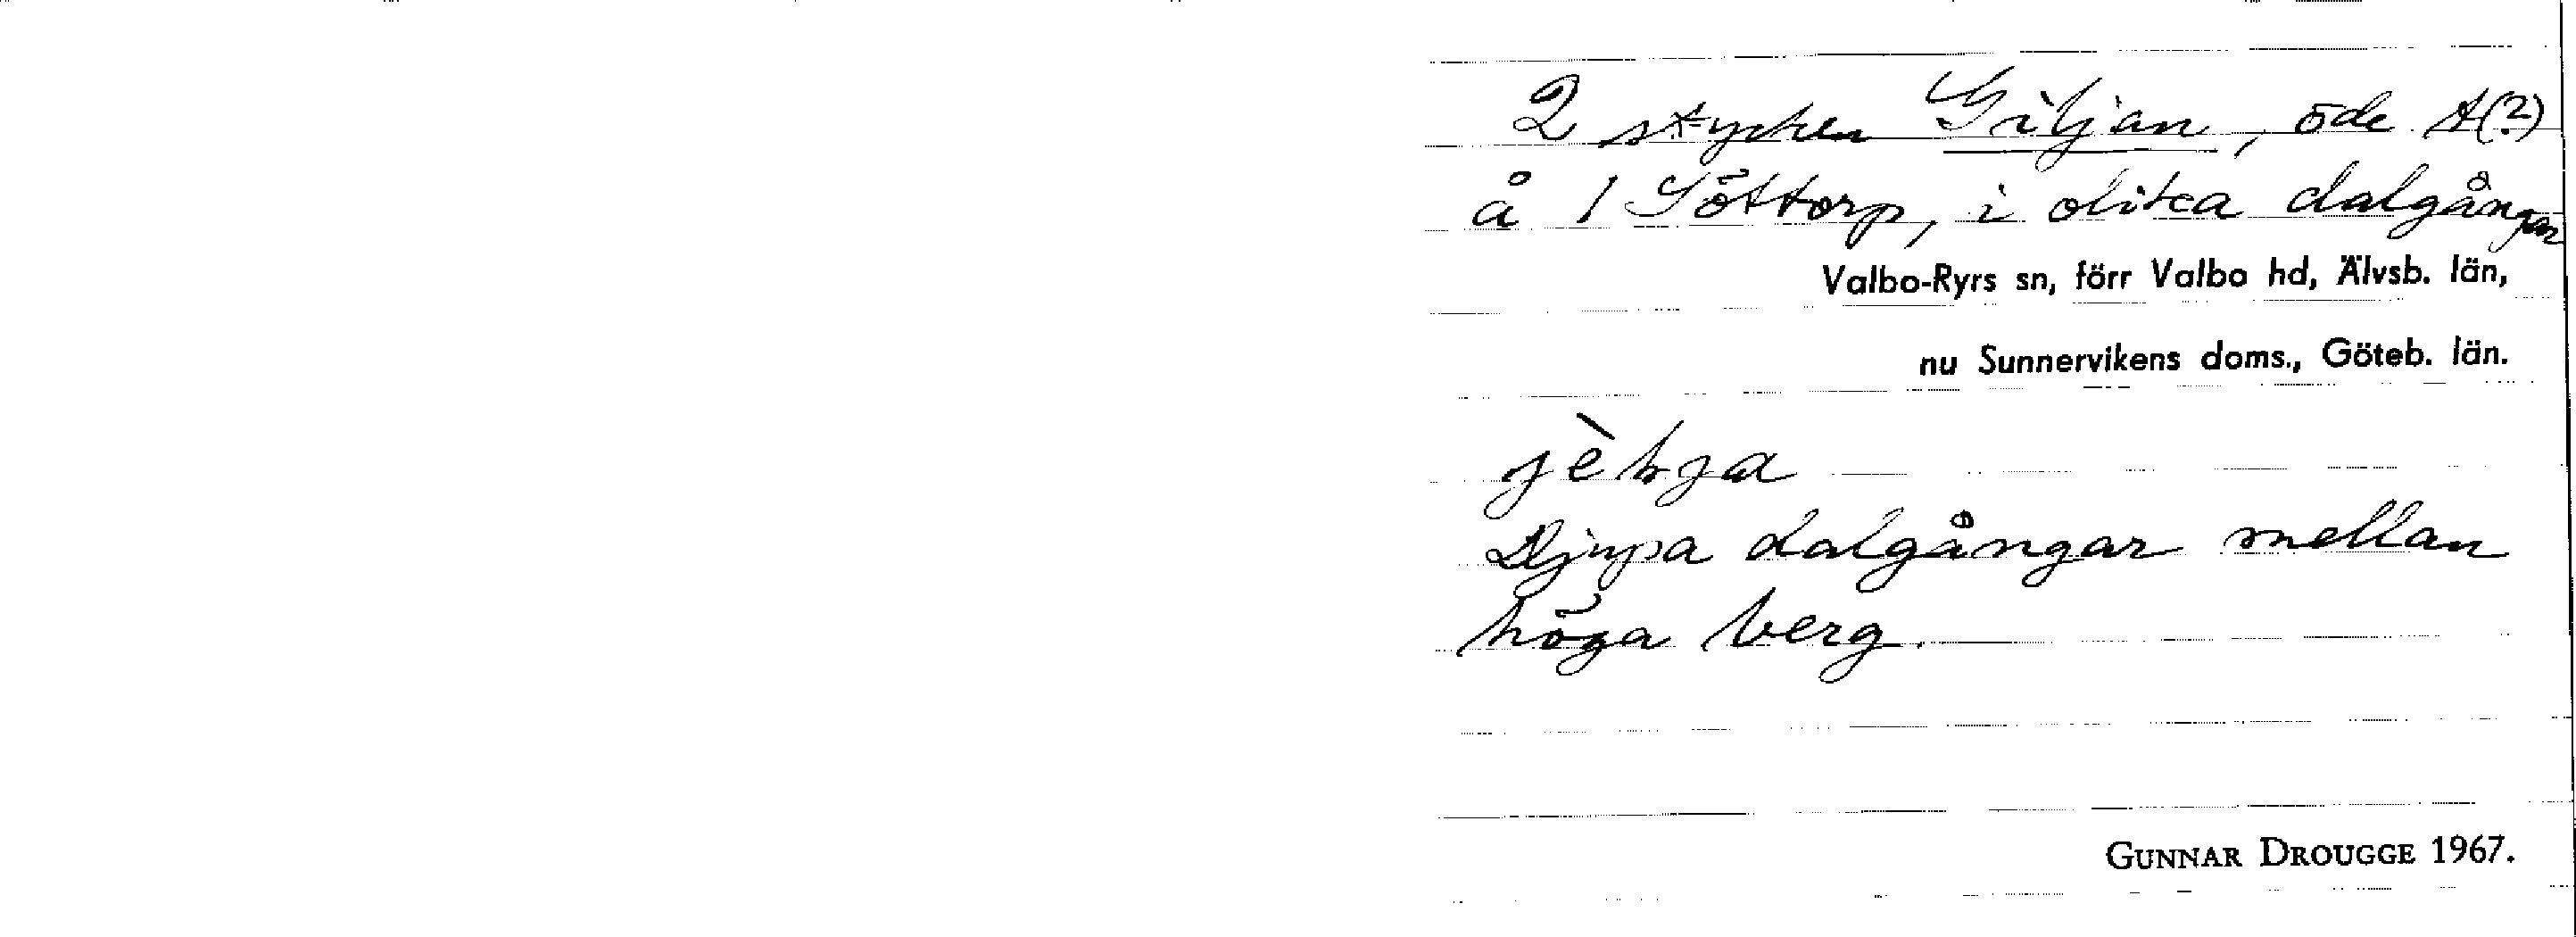 2 stycken Giljan, öde t(?)
å 1 Söttorp, i olika dalgångar
Valbo-Ryrs sn, förr Valbo hd, Älvsb. län,
nu Sunnervikens doms., Göteb. län.
Djupa dalgångar mellan
höga berg.
GUNNAR DROUGGE 1967.